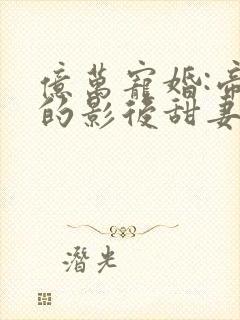 億萬寵婚:帝
的影後甜妻
潛光